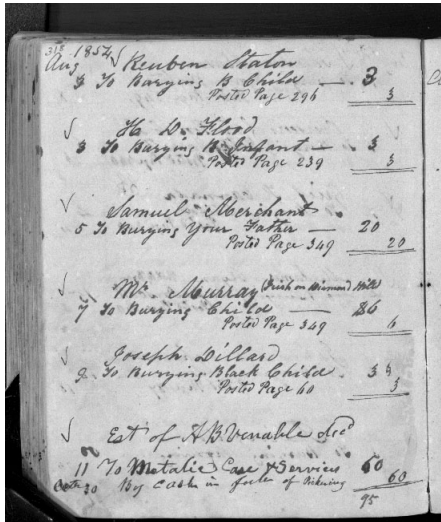 318
Aug 1854 √ Reuben Staton
3 To Burying B Child — 3
Posted Page 296 3
√ H. D. Flood
3 To Burying B Infant — 3
Posted Page 239 3
√ Samuel Merchant
5 To Burying Your Father — 20
Posted Page 349 20
√ Mr. Murray (Irish on Diamond Hill)
7 To Burying Child — 6
Posted Page 349 6
√ Joseph Dillard
9 To Burying Black Child 3
Posted Page 60 3
√ Est of A B Venable Decd
11 To Metalic Case & Services 60
30 By Cash in full of 60
95